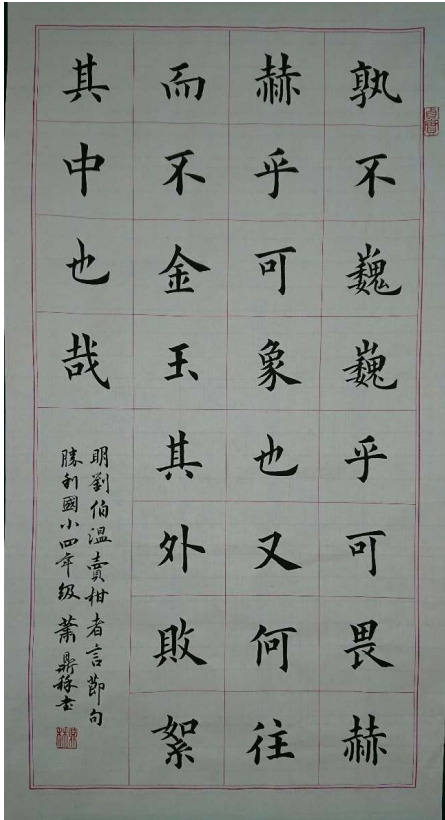 孰不巍巍乎可畏赫
赫乎可象也又何往
而不金玉其外敗絮
其中也哉
明劉伯溫賣柑者言節句
勝利國小四年級 蕭鼎稼書